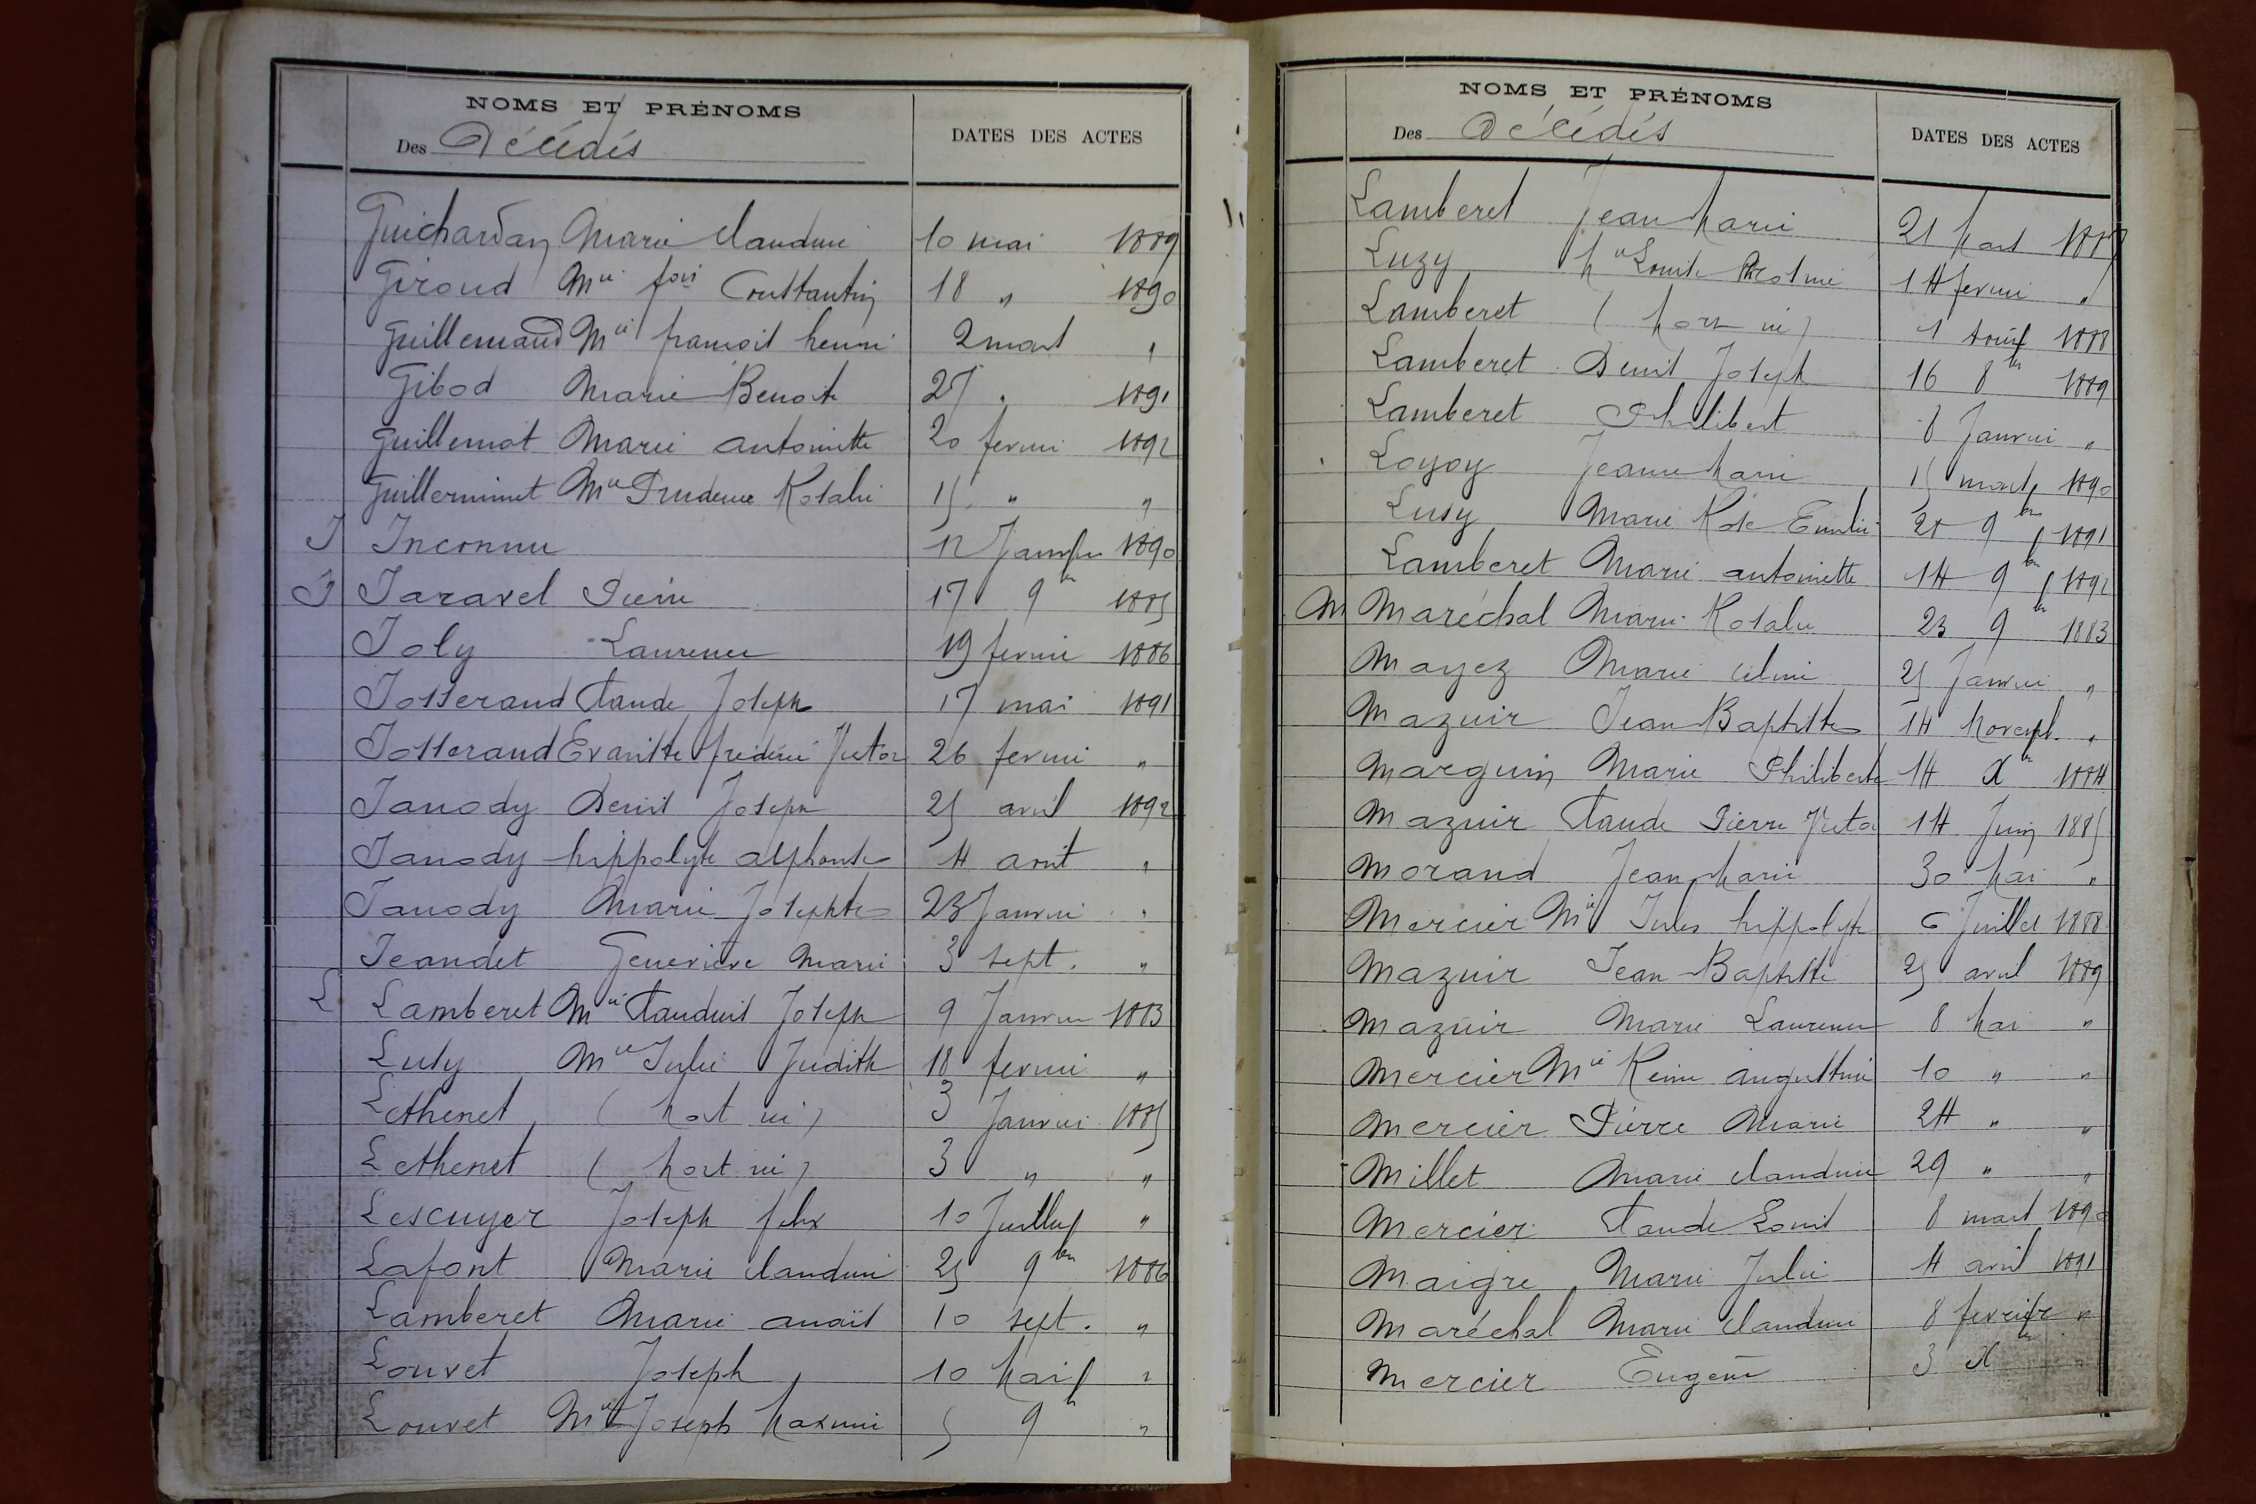 NOMS ET PRÉNOMS
Des Décédés
DATES DES ACTES
Guichardan Marie Claudine 10 mai 1889
Giroud Mie fois Constantin 18 " 1890
Guillemaud Mie françois henri 2 mars "
Gibod Marie Benoite 27 " 1891
Guillemot Marie antoinette 20 fevrier 1892
Guillerminet Mie Prudence Rosalie 15 " "
I Inconnu 12 Janvier 1890
J Jaravel Pierre 17 9bre 1885
Joly Laurence 19 fevrier 1886
Josserand Claude Joseph 17 mai 1891
Josserand Evariste frédéric Victor 26 fevrier "
Janody Denis Joseph 25 avril 1892
Janody hippolyte alphonse 4 août "
Janody Marie Josephte 23 Janvier "
Jeandet Geneviève Marie 3 sept. "
L Lamberet Mie Claudius Joseph 9 Janvier 1883
Lusy Mie Julie Judith 18 fevrier "
Lethenet (mort né) 3 Janvier 1885
Lethenet (mort né) 3 " "
Lescuyer Joseph felix 10 Juillet "
Lafont Marie Claudine 25 9bre 1886
Lamberet Marie anaïs 10 sept. "
Louvet Joseph 10 Mai "
Louvet Mie Joseph Maxime 5 9b "
NOMS ET PRÉNOMS
Des Décédés
DATES DES ACTES
Lamberet Jean Marie 21 Mars 1887
Luzy Mie Louise 14 fevrier "
Lamberet (mort né) 1 août 1888
Lamberet Denis Joseph 16 8bre 1889
Lamberet Philibert 8 Janvier "
Loyoy Jeanne Marie 15 mars 1890
Lusy Marie Rose Emilie 28 9bre 1891
Lamberet Marie antoinette 14 9bre 1892
M Maréchal Marie Rosalie 23 9bre 1883
Mayez Marie celine 25 Janvier "
Mazuir Jean Baptiste 14 Novemb. "
Marguin Marie Philiberte 14 Xbre 1884
Mazuir Claude Pierre Victor 14 Juin 1885
Morand Jean Marie 30 Mai "
Mercier Mie Jules hippolyte 6 Juillet 1888
Mazuir Jean Baptiste 25 avril 1889
Mazuir Marie Laurence 8 Mai "
Mercier Mie Reine augustine 10 " "
Mercier Pierre Marie 24 " "
Millet Marie Claudine 29 " "
Mercier Claude Louis 8 mars 1890
Maigre Marie Julie 4 avril 1891
Maréchal Marie Claudine 8 fevrier "
Mercier Eugène 3 Xbre